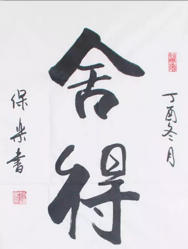 丁酉冬月
舍得
保乐書